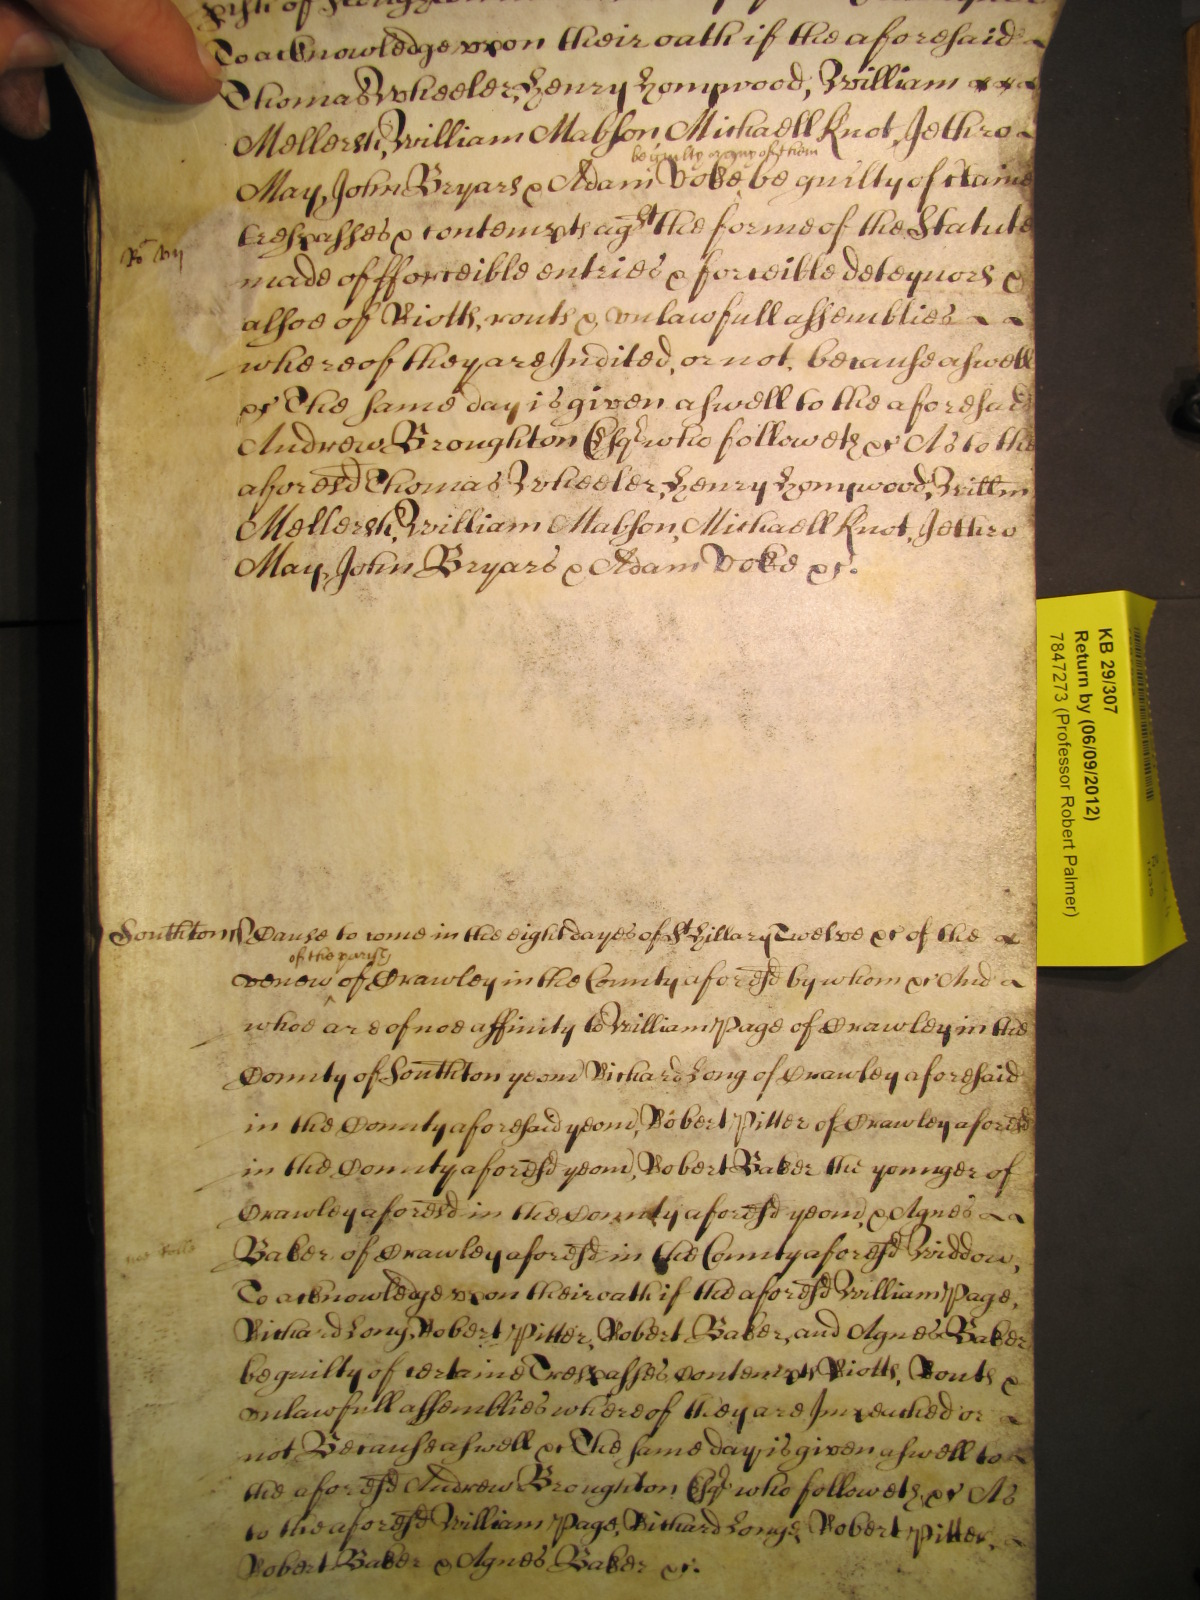 To acknowledge upon their oath if the aforesaid
Thomas Wheeler, Henry Homwood, William
Mellersh, William Mabson, Michaell Knot, Jethro
be guilty or any of them
May, John Bryars & Adam Voke, be guilty of ctaine
trespasses & contempts agst the forme of the Statute
Ro by
made of fforceible entries & forceible deteynors &
alsoe of Riotts, routs & vnlawfull assemblies
whereof they are Indited, or not, because aswell
&c The same day is given aswell to the aforesaid
Andrew Broughton Esqr who followeth &c As to the
aforesd Thomas Wheeler, Henry Homwood, Willm
Mellersh, William Mabson, Michaell Knot, Jethro
May, John Bryars & Adam Voke &c.
KB 29/307
Return by (06/09/2012)
7847273 (Professor Robert Palmer)
Southton ss Cause to come in the eight dayes of St Hillary Twelve &c of the
of the parish
venew of Crawley in the County aforesd by whom &c And
whoe are of noe affinity to William Page of Crawley in the
County of Southton yeom Richard Long of Crawley aforesaid
in the County aforesaid yeom, Robert Pitter of Crawley aforesd
in the County aforesd yeom, Robert Baker the younger of
Crawley aforesd in the County aforesd yeom, & Agnes
Baker of Crawley aforesd in the County aforesd Widdow,
To acknowledge upon their oath if the aforesd William Page,
Richard Long, Robert Pitter, Robert Baker, and Agnes Baker
be guilty of certaine Trespasses, Contempts, Riotts, Routs &
vnlawfull assemblies whereof they are Impeached or
not Because aswell &c The same day is given aswell to
the aforesd Andrew Broughton Esqr who followeth &c As
to the aforesd William Page, Richard Longe, Robert Pitter,
Robert Baker & Agnes Baker &c.